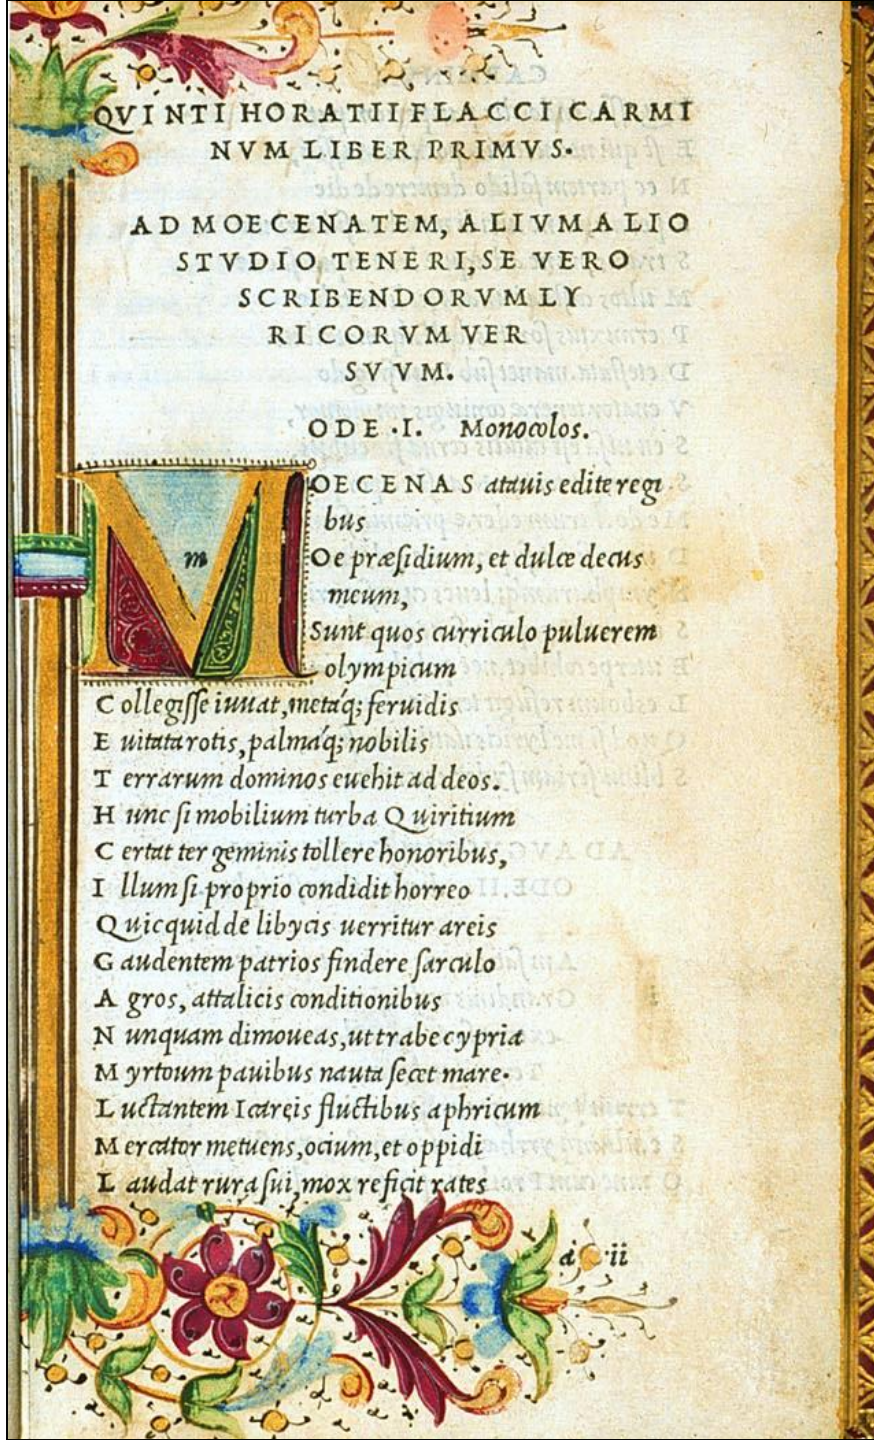 QVINTI HORATII FLACCI CARMI
NVM LIBER PRIMVS.
AD MOECENATEM, ALIVM ALIO
STVDIO TENERI, SE VERO
SCRIBENDORVM LY
RICORVM VER
SVVM.
ODE .I. Monocolos.
MOECENAS atauis edite regi
bus
Oe præſidium, et dulce decus
meum,
Sunt quos curriculo puluerem
olympicum
C ollegiſſe iuuat, metáq; feruidis
E uitata rotis, palmáq; nobilis
T errarum dominos euehit ad deos.
H unc ſi mobilium turba Quiritium
C ertat ter geminis tollere honoribus,
I llum ſi proprio condidit horreo
Q uicquid de libycis uerritur areis
G audentem patrios findere ſarculo
A gros, attalicis conditionibus
N unquam dimoueas, ut trabe cypria
M yrtoum pauibus nauta ſecet mare.
L uctantem Icareis fluctibus aphricum
M ercator metuens, ocium, et oppidi
L audat rura ſui, mox reficit rates
a ii